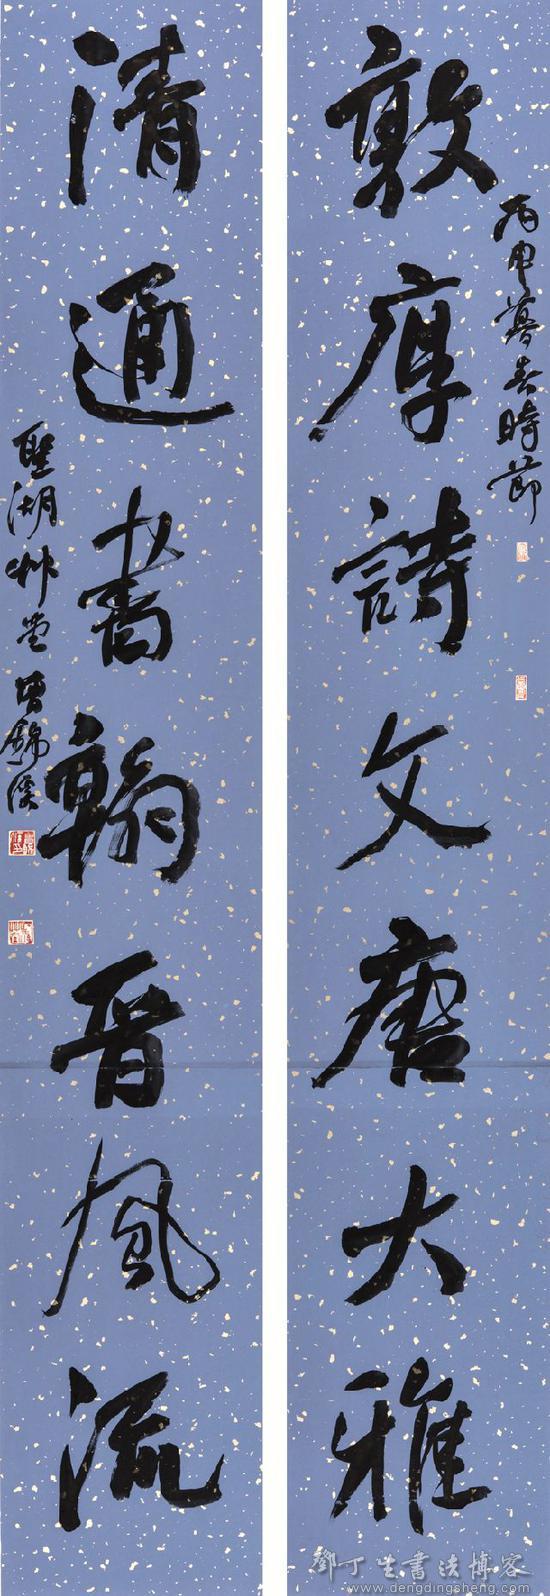 敦厚詩文唐大雅
丙申暮春時節
清通書翰晉風流
聖湖艸堂曾錦溪
鄧丁生書法博客
www.dengdingsheng.com